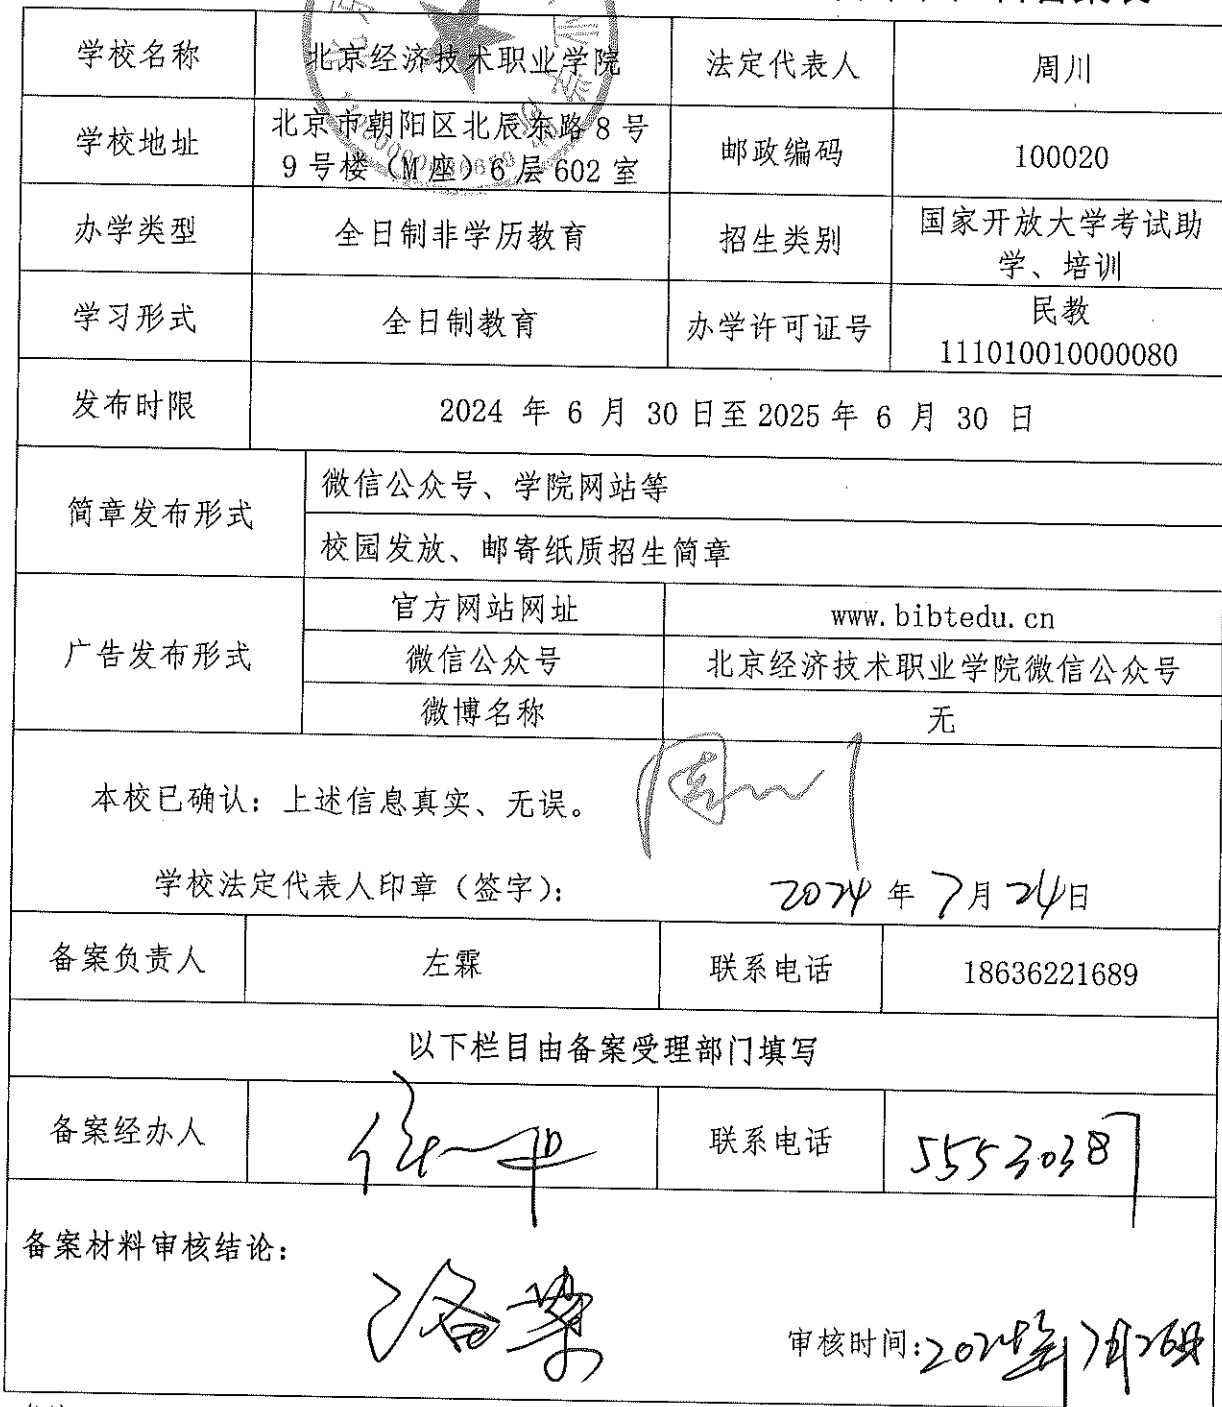 学校名称 北京经济技术职业学院 法定代表人 周川
学校地址 北京市朝阳区北辰东路 8 号
9 号楼（M 座）6 层 602 室 邮政编码 100020
办学类型 全日制非学历教育 招生类别 国家开放大学考试助
学、培训
学习形式 全日制教育 办学许可证号 民教
111010010000080
发布时限 2024 年 6 月 30 日至 2025 年 6 月 30 日
简章发布形式 微信公众号、学院网站等
校园发放、邮寄纸质招生简章
广告发布形式 官方网站网址 www.bibtedu.cn
微信公众号 北京经济技术职业学院微信公众号
微博名称 无
本校已确认：上述信息真实、无误。
周川
学校法定代表人印章（签字）： 2024 年 7 月 24 日
备案负责人 左霖 联系电话 18636221689
以下栏目由备案受理部门填写
备案经办人 联系电话 55530387
备案材料审核结论：
备案
审核时间：2024年7月26日